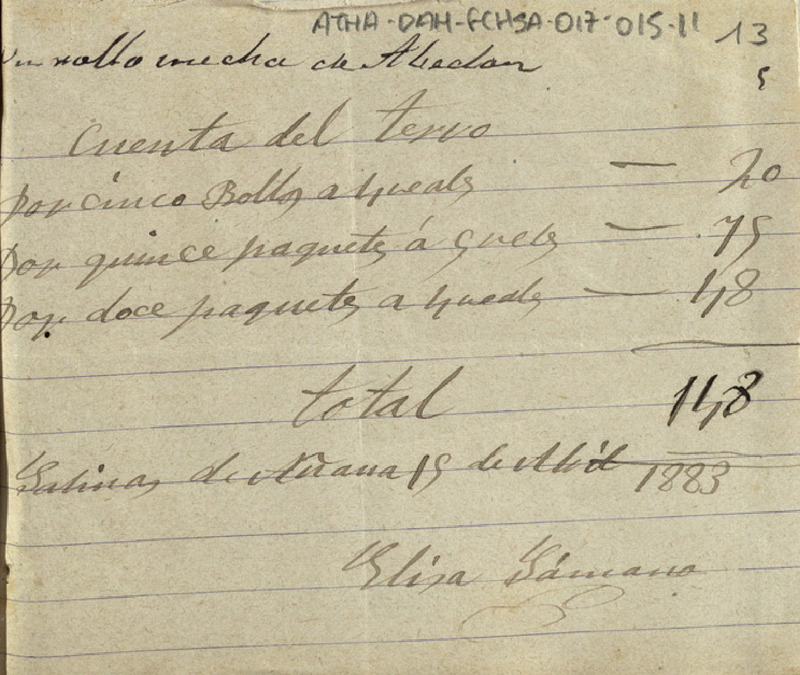 ATHA-DAH-FCHSA-017-015-11 13
5
Un rollo mecha de Abedon
Cuenta del terro
por cinco Rollos a 4 reales — 20
Por quince paquetes á 5 reales — 75
Por doce paquetes a 4 reales — 48
total 148
Salinas de Añana 15 de Abril 1883
Elisa Sámano